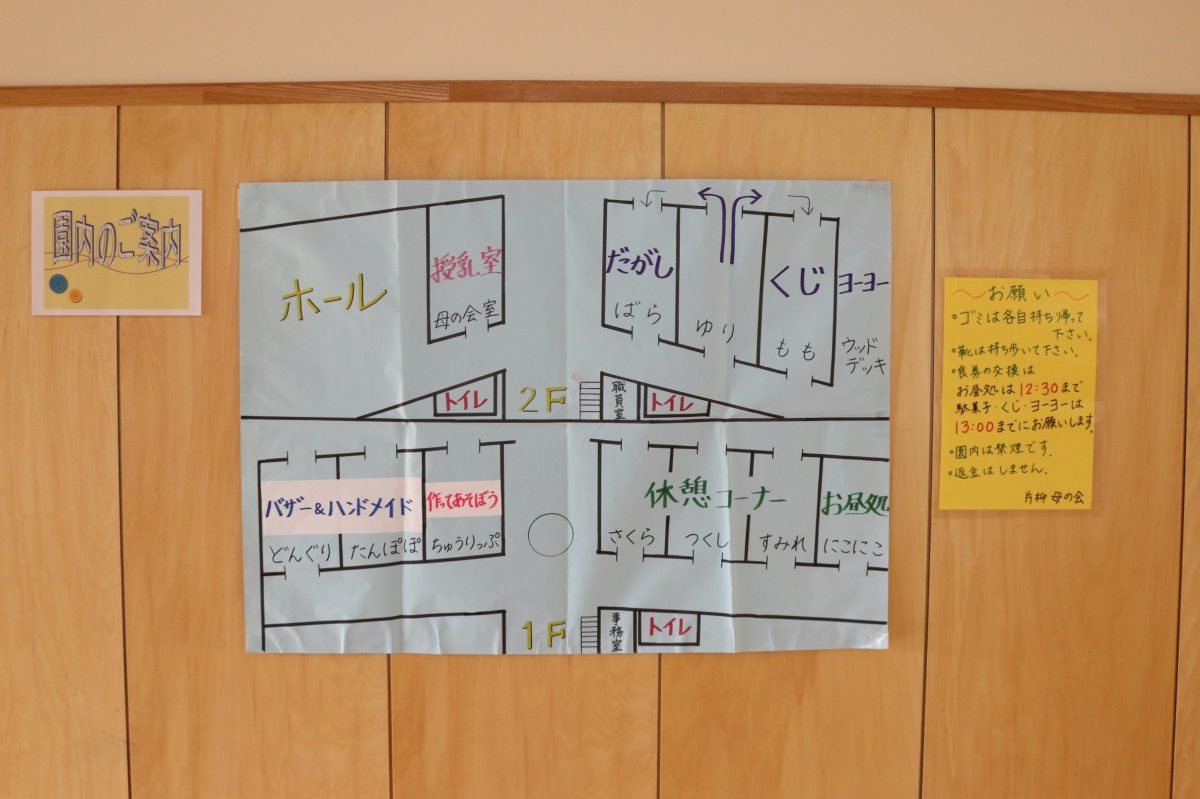 園内のご案内
ホール
授乳室
母の会室
だがし
ばら
ゆり
くじ
もも
ヨーヨー
ウッド
デッキ
トイレ
2F
職員室
トイレ
バザー&ハンドメイド
どんぐり
たんぽぽ
作ってあそぼう
ちゅうりっぷ
休憩コーナー
さくら
つくし
すみれ
お昼処
にこにこ
1F
事務室
トイレ
〜お願い〜
・ゴミは各自持ち帰って
下さい。
・靴は持ち歩いて下さい。
・食券の交換は
お昼処は12:30まで
駄菓子・くじ・ヨーヨーは
13:00までにお願いします。
・園内は禁煙です。
・返金はしません。
片柳 母の会